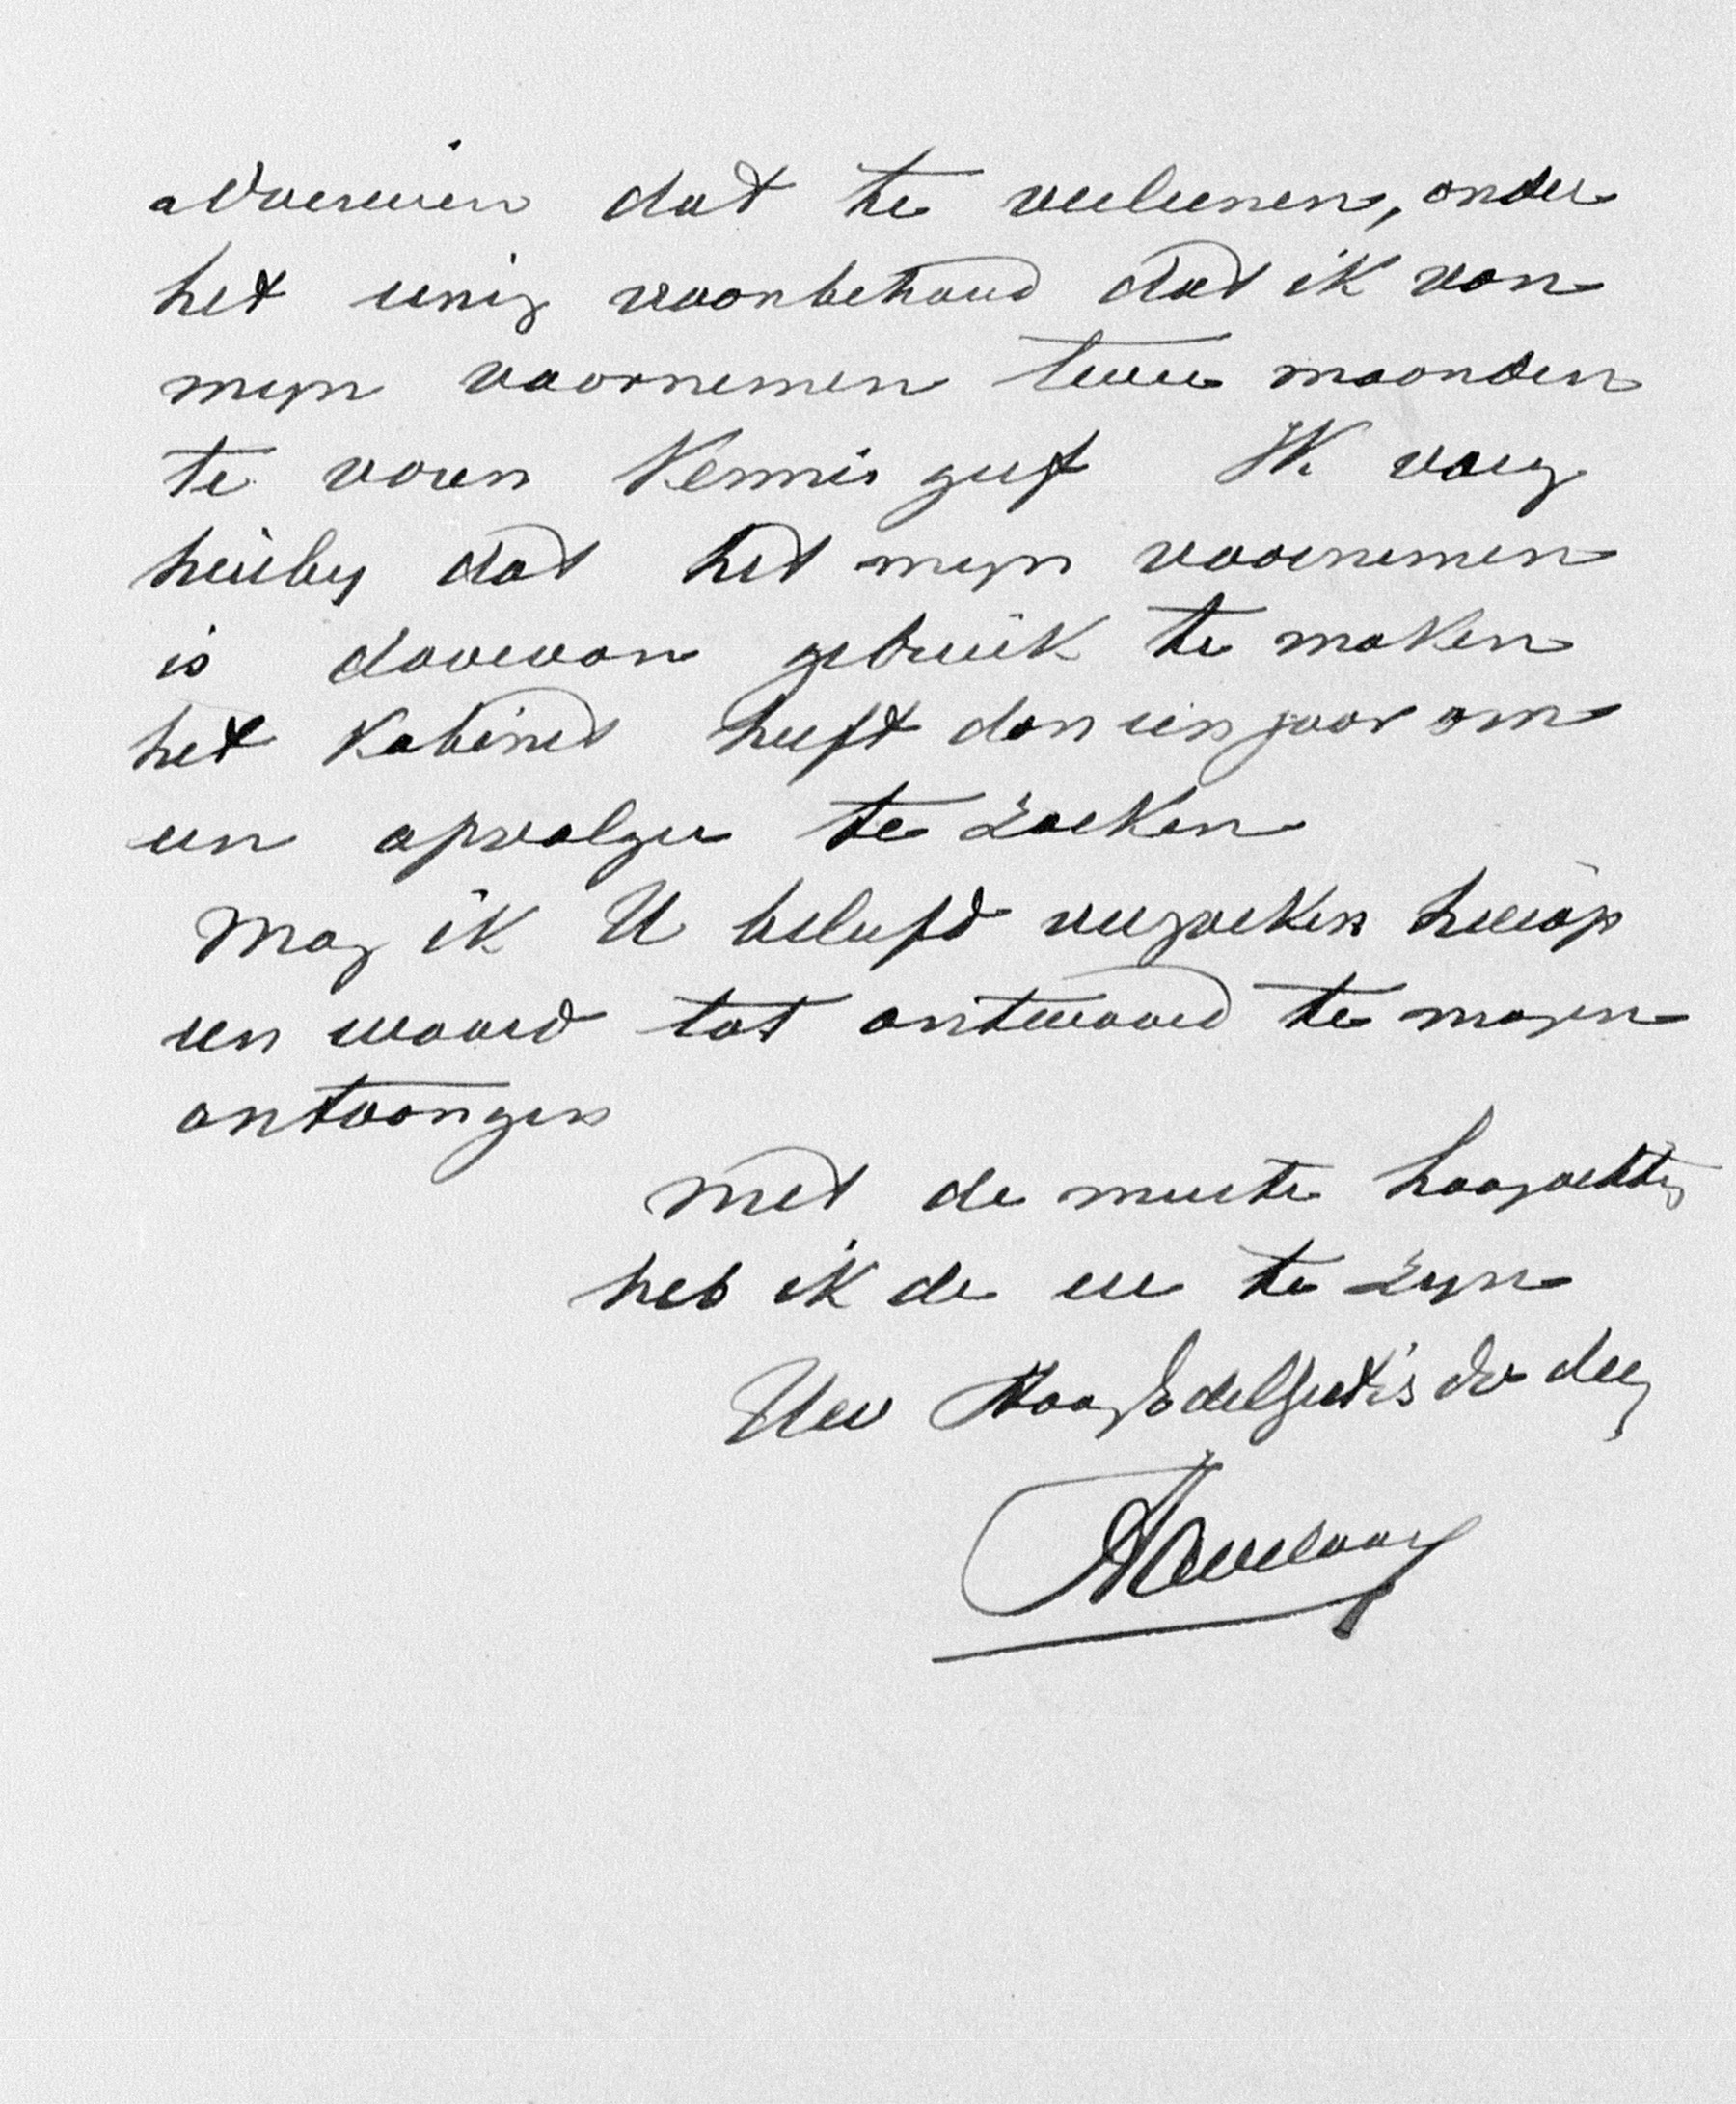 adviseeren dat te verleenen, onder
het eenig voorbehoud dat ik van
mijn voornemen twee maanden
te voren kennis geef Ik voeg
hierbij dat het mijn voornemen
is daarvan gebruik te maken
het Kabinet heeft dan een jaar om
een opvolger te zoeken
Mag ik U beleefd verzoeken hierop
een woord tot antwoord te mogen
ontvangen
Met de meeste hoogachting
heb ik de eer te zijn
Uw HoogEdelGestr's dw dr